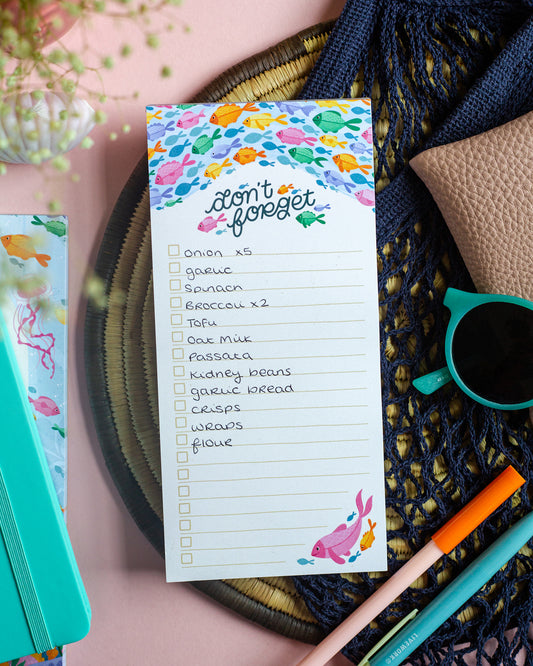 don't
forget
Onion x5
garlic
Spinach
Broccoli x2
Tofu
Oat Milk
Passata
Kidney beans
garlic bread
crisps
wraps
flour
LIVEWORK®